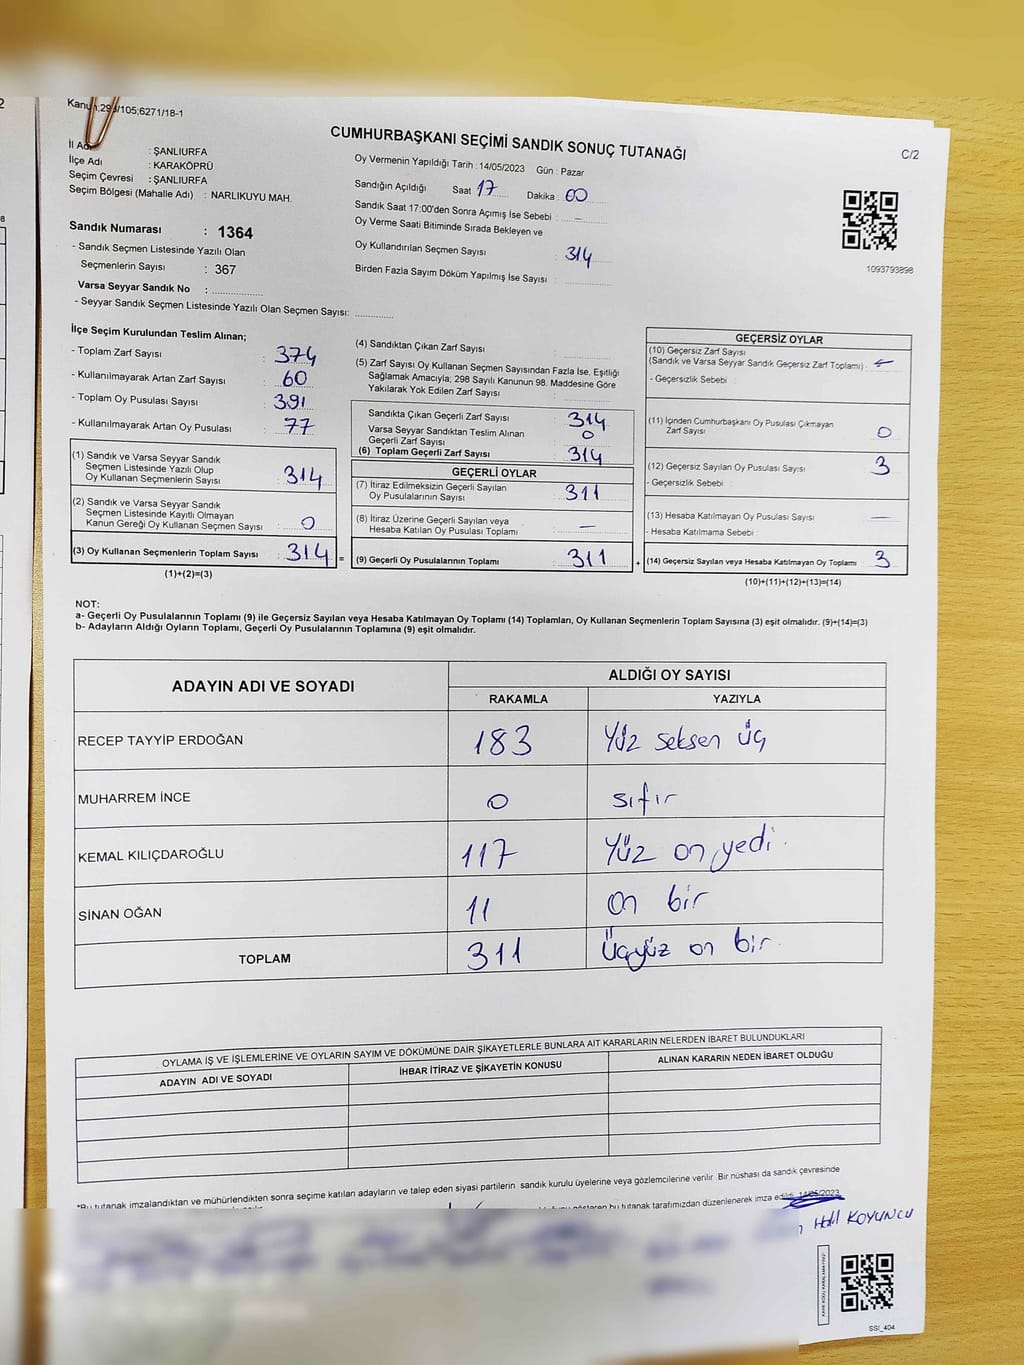 2
Kanun;298/105;6271/18-1
CUMHURBAŞKANI SEÇİMİ SANDIK SONUÇ TUTANAĞI
C/2
İl Adı : ŞANLIURFA
İlçe Adı : KARAKÖPRÜ
Seçim Çevresi : ŞANLIURFA
Seçim Bölgesi (Mahalle Adı) : NARLIKUYU MAH.
Sandık Numarası : 1364
- Sandık Seçmen Listesinde Yazılı Olan
Seçmenlerin Sayısı : 367
Varsa Seyyar Sandık No :
- Seyyar Sandık Seçmen Listesinde Yazılı Olan Seçmen Sayısı:
Oy Vermenin Yapıldığı Tarih : 14/05/2023 Gün : Pazar
Sandığın Açıldığı Saat 17 Dakika : 00
Sandık Saat 17:00'den Sonra Açımış İse Sebebi : -
Oy Verme Saati Bitiminde Sırada Bekleyen ve
Oy Kullandırılan Seçmen Sayısı : 314
Birden Fazla Sayım Döküm Yapılmış İse Sayısı :
1093793898
İlçe Seçim Kurulundan Teslim Alınan;
- Toplam Zarf Sayısı : 374
- Kullanılmayarak Artan Zarf Sayısı : 60
- Toplam Oy Pusulası Sayısı : 391
- Kullanılmayarak Artan Oy Pusulası : 77
(1) Sandık ve Varsa Seyyar Sandık
Seçmen Listesinde Yazılı Olup
Oy Kullanan Seçmenlerin Sayısı : 314
(2) Sandık ve Varsa Seyyar Sandık
Seçmen Listesinde Kayıtlı Olmayan
Kanun Gereği Oy Kullanan Seçmen Sayısı : 0
(3) Oy Kullanan Seçmenlerin Toplam Sayısı : 314 =
(1)+(2)=(3)
(4) Sandıktan Çıkan Zarf Sayısı :
(5) Zarf Sayısı Oy Kullanan Seçmen Sayısından Fazla İse, Eşitliği
Sağlamak Amacıyla; 298 Sayılı Kanunun 98. Maddesine Göre
Yakılarak Yok Edilen Zarf Sayısı :
Sandıkta Çıkan Geçerli Zarf Sayısı : 314
Varsa Seyyar Sandıktan Teslim Alınan
Geçerli Zarf Sayısı : 0
(6) Toplam Geçerli Zarf Sayısı : 314
GEÇERLİ OYLAR
(7) İtiraz Edilmeksizin Geçerli Sayılan
Oy Pusulalarının Sayısı : 311
(8) İtiraz Üzerine Geçerli Sayılan veya
Hesaba Katılan Oy Pusulası Toplamı : -
(9) Geçerli Oy Pusulalarının Toplamı : 311 +
GEÇERSİZ OYLAR
(10) Geçersiz Zarf Sayısı
(Sandık ve Varsa Seyyar Sandık Geçersiz Zarf Toplamı) :
- Geçersizlik Sebebi :
(11) İçinden Cumhurbaşkanı Oy Pusulası Çıkmayan
Zarf Sayısı : 0
(12) Geçersiz Sayılan Oy Pusulası Sayısı : 3
- Geçersizlik Sebebi :
(13) Hesaba Katılmayan Oy Pusulası Sayısı : -
- Hesaba Katılmama Sebebi :
(14) Geçersiz Sayılan veya Hesaba Katılmayan Oy Toplamı : 3
(10)+(11)+(12)+(13)=(14)
NOT:
a- Geçerli Oy Pusulalarının Toplamı (9) ile Geçersiz Sayılan veya Hesaba Katılmayan Oy Toplamı (14) Toplamları, Oy Kullanan Seçmenlerin Toplam Sayısına (3) eşit olmalıdır. (9)+(14)=(3)
b- Adayların Aldığı Oyların Toplamı, Geçerli Oy Pusulalarının Toplamına (9) eşit olmalıdır.
ADAYIN ADI VE SOYADI
ALDIĞI OY SAYISI
RAKAMLA YAZIYLA
RECEP TAYYİP ERDOĞAN 183 Yüz seksen üç
MUHARREM İNCE 0 sıfır
KEMAL KILIÇDAROĞLU 117 Yüz on yedi.
SİNAN OĞAN 11 On bir
TOPLAM 311 Üçyüz on bir.
OYLAMA İŞ VE İŞLEMLERİNE VE OYLARIN SAYIM VE DÖKÜMÜNE DAİR ŞİKAYETLERLE BUNLARA AİT KARARLARIN NELERDEN İBARET BULUNDUKLARI
ADAYIN ADI VE SOYADI İHBAR İTİRAZ VE ŞİKAYETİN KONUSU ALINAN KARARIN NEDEN İBARET OLDUĞU
*Bu tutanak imzalandıktan ve mühürlendikten sonra seçime katılan adayların ve talep eden siyasi partilerin sandık kurulu üyelerine veya gözlemcilerine verilir. Bir nüshası da sandık çevresinde
gösteren bu tutanak tarafımızdan düzenlenerek imza edildi. 14/05/2023
Halil KOYUNCU
SSİ_404